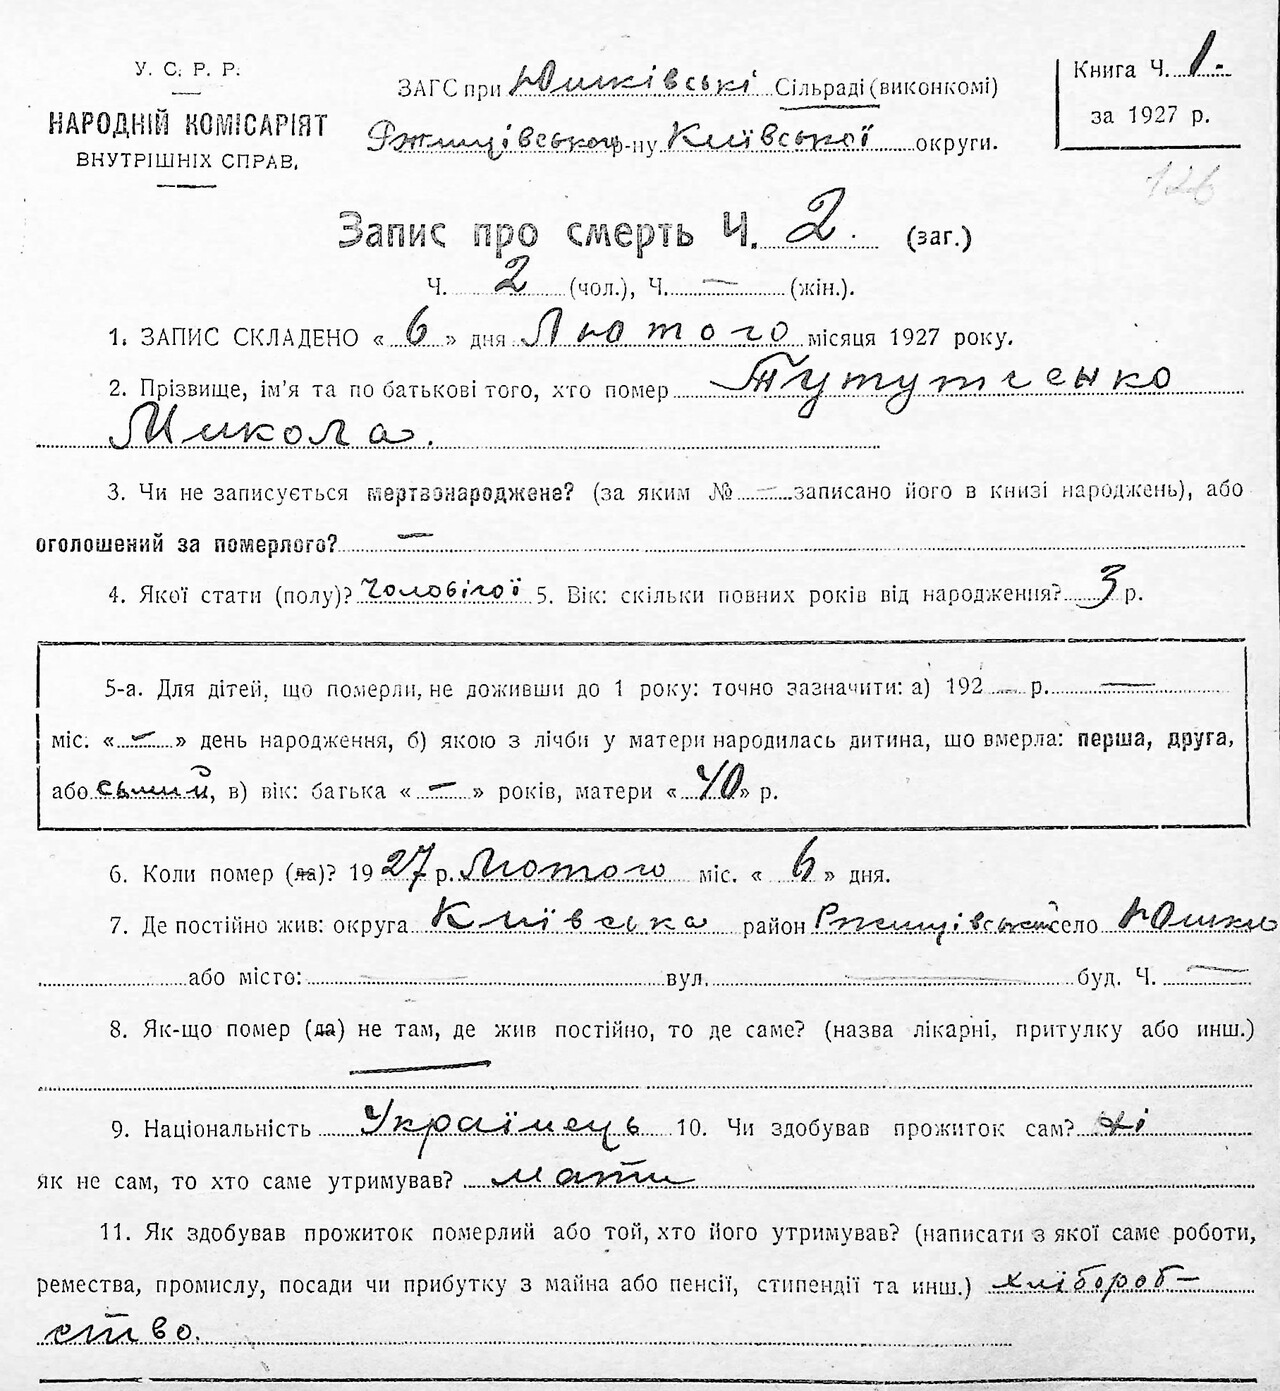 У. С. Р. Р.
НАРОДНІЙ КОМІСАРІЯТ
ВНУТРІШНІХ СПРАВ.
ЗАГС при Юшківські Сільраді (виконкомі)
Ржищівського р-ну Київської округи.
Книга Ч. 1.
за 1927 р.
126
Запис про смерть Ч. 2. (заг.)
Ч. 2 (чол.), Ч. — (жін.).
1. ЗАПИС СКЛАДЕНО « 6 » дня Лютого місяця 1927 року.
2. Прізвище, ім'я та по батькові того, хто помер Тутутченко
Микола.
3. Чи не записується мертвонароджене? (за яким № — записано його в книзі народжень), або
оголошений за померлого? —
4. Якої стати (полу)? Чоловічої 5. Вік: скільки повних років від народження? 3 р.
5-а. Для дітей, що померли, не доживши до 1 року: точно зазначити: а) 192 — р. —
міс. « — » день народження, б) якою з лічби у матери народилась дитина, що вмерла: перша, друга,
або сьмий, в) вік: батька « — » років, матери « 40 » р.
6. Коли помер (ла)? 1927 р. Лютого міс. « 6 » дня.
7. Де постійно жив: округа Київська район Ржищівський село Юшки
або місто: — вул. — буд. Ч. —
8. Як-що помер (ла) не там, де жив постійно, то де саме? (назва лікарні, притулку або инш.)
—
9. Національність Українець 10. Чи здобував прожиток сам? ні
як не сам, то хто саме утримував? мати
11. Як здобував прожиток померлий або той, хто його утримував? (написати з якої саме роботи,
ремества, промислу, посади чи прибутку з майна або пенсії, стипендії та инш.) хлібороб-
ство.